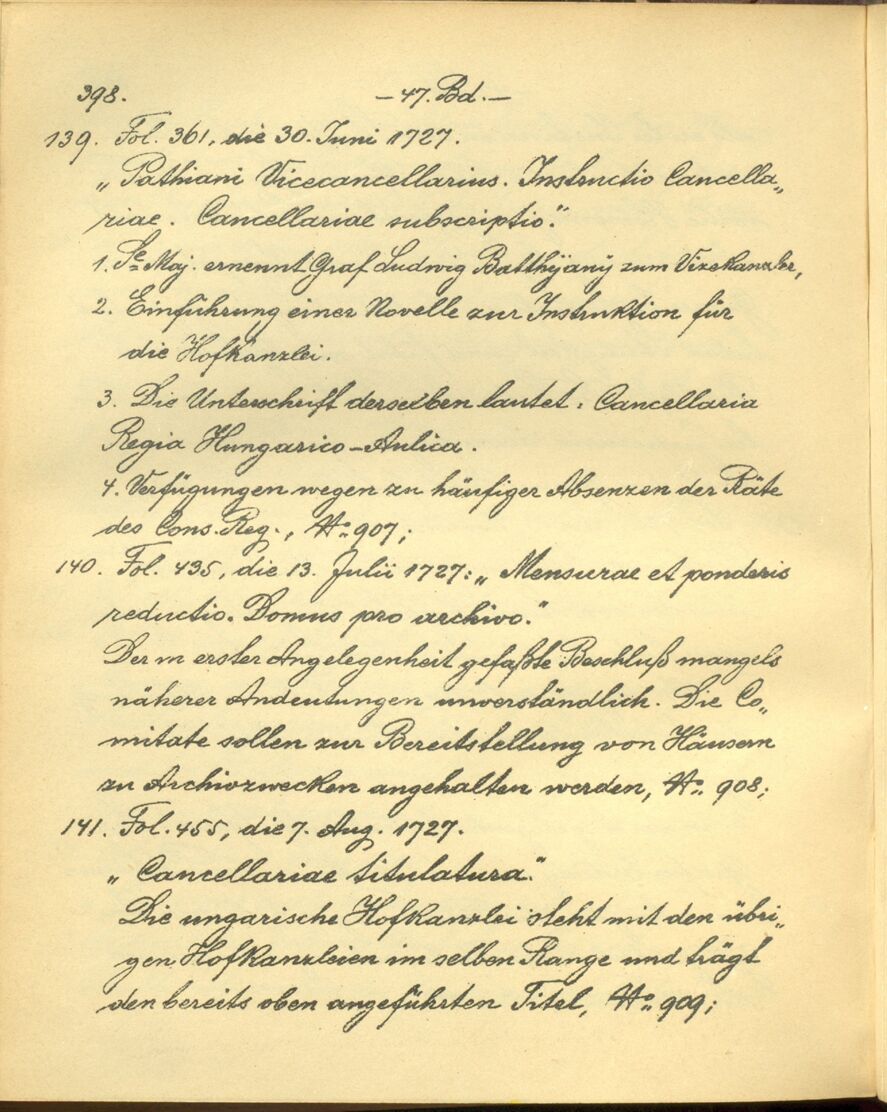 398. – 47. Bd. –
139. Fol. 361, die 30. Juni 1727.
„Pathiani Vicecancellarius. Instructio Cancella„
riae. Cancellariae subscriptio.“
1. Se Maj. ernennt Graf Ludwig Batthÿanÿ zum Vizekanzler,
2. Einführung einer Novelle zur Instruktion für
die Hofkanzlei.
3. Die Unterschrift derselben lautet: Cancellaria
Regia Hungarico-Aulica.
4. Verfügungen wegen zu häufiger Absenzen der Räte
des Cons. Reg., No. 907;
140. Fol. 435, die 13. Julii 1727: „Mensurae et ponderis
reductio. Domus pro archivo.“
Der in erster Angelegenheit gefaßte Beschluß mangels
näherer Andeutungen unverständlich. Die Co„
mitate sollen zur Bereitstellung von Häusern
zu Archivzwecken angehalten werden, No. 908;
141. Fol. 455, die 7. Aug. 1727.
„Cancellariae titulatura.“
Die ungarische Hofkanzlei steht mit den übri„
gen Hofkanzleien im selben Range und trägt
den bereits oben angeführten Titel, No. 909;